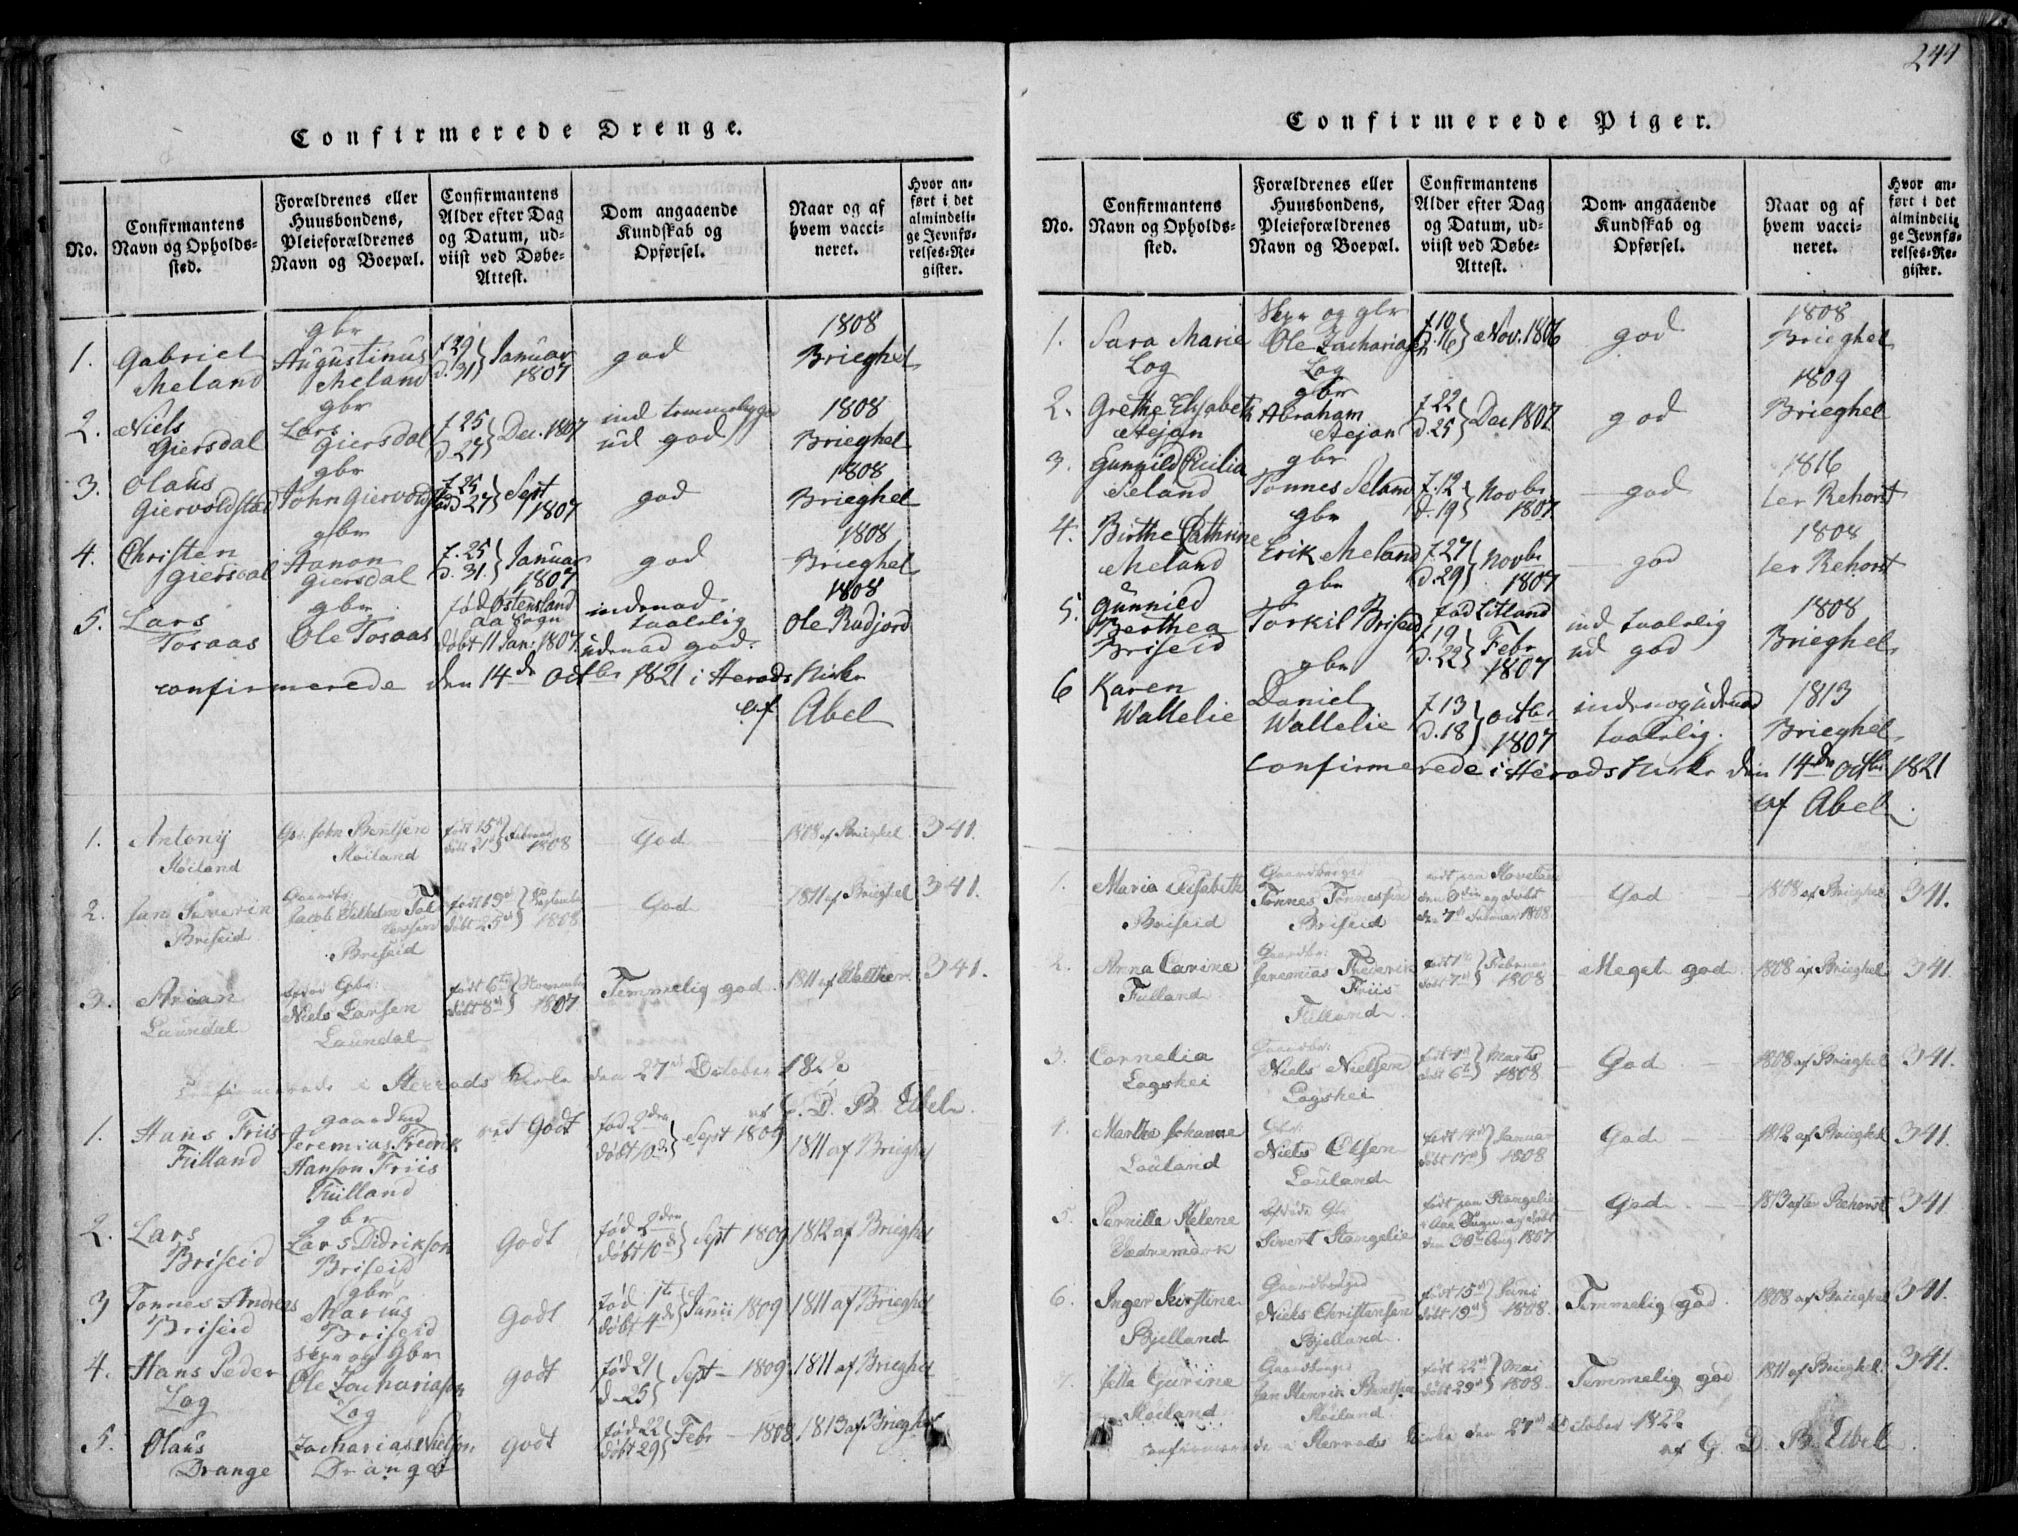 244
Confirmerede Drenge.
No.
Confirmantens Navn og Opholds-sted.
Forældrenes eller Huusbondens, Pleieforældrenes Navn og Boepæl.
Confirmantens Alder efter Dag og Datum, ud-viist ved Døbe-Attest.
Dom angaaende Kundskab og Opførsel.
Naar og af hvem vacci-neret.
Hvor an-ført i det almindeli-ge Jevnfø-relses-Re-gister.
1. Gabriel Meland gbr Augustinus Meland f. 29 d. 31 Januar 1807 god 1808 Brieghel
2. Niels Giersdal gbr Lars Giersdal f. 25 d. 27 Dec. 1807 ud god 1808 Brieghel
3. Olaus Giervoldstad gbr John Giervoldstad f. 25 d. 27 Sept 1807 god 1808 Brieghel
4. Christen Giersdal gbr Hanon Giersdal f. 25 d. 31 Januar 1807 god 1808 Brieghel
5. Lars Tosaas gbr Ole Tosaas fød Ostensland aa Sogn døbt 11 Jan. 1807 indenad taalelig udenad god 1808 Ole Rudjord
confirmerede den 14de Octbr 1821 i Herads Kirke
af Abel
1. Antony Røiland Gbr. John Bentsen Røiland født 15de døbt 21de Februar 1808 God 1808 af Brieghel 341.
2. Jan Severin Briseid Gaardbr: Jacob Vilhelm Briseid født 19de døbt 25de September 1808 God 1811 af Brieghel 341.
3. Arian Laundal Gbr: Niels Larsen Laundal født 6te døbt 8de November 1807 Temmelig god 1811 af 341.
Confirmerede i Herrads Kirke den 27de October 1822
af G. D. B. Abel.
1. Hans Friis Fulland gaardbr Jeremias Fredrik Hanson Friis Fulland ret Godt fød 2den døbt 10de Sept 1809 1811 af Brieghel
2. Lars Briseid gbr Lars Didrikson Briseid Godt fød 2den døbt 10de Sept 1809 1812 af Brieghel
3 Tonnes Andreas Briseid gbr Marius Briseid Godt fød 1te døbt 4de Junii 1809 1811 af Brieghel
4. Hans Peder Log Skpr og Gbr Ole Zachariason Log Godt fød 21 d. 25 Sept 1809 1811 af Brieghel
5. Olaus Drange Zacharias Nielson Drange Godt fød 22 døbt 29 Febr 1808 1813 af Brieghel
Confirmerede Piger.
No.
Confirmantens Navn og Opholds-sted.
Forældrenes eller Huusbondens, Pleieforældrenes Navn og Boepæl.
Confirmantens Alder efter Dag og Datum, ud-viist ved Døbe-Attest.
Dom angaaende Kundskab og Opførsel.
Naar og af hvem vacci-neret.
Hvor an-ført i det almindelig-ge Jevnfø-relses-Re-gister.
1. Sara Marie Log Skpr og gbr Ole Zachariasen Log f. 10 d. 16 Nov. 1806 god 1808 Brieghel
2. Grethe Elisabeth Stejan gbr Abraham Stejan f. 22 d. 25 Dec 1807 god 1809 Brieghel
3. Gunnild Cecilia Seland gbr Tonnes Seland f. 12 d. 19 Novbr 1807 god 1816 ler Rehorst
4. Birthe Cathrine Meland gbr Erik Meland f. 27 d. 29 Novbr 1807 god 1808 ler Rehorst
5. Gunnild Berthea Briseid gbr Torkil Briseid fød Litland f. 19 d. 22 Febr 1807 ind taalelig ud god 1808 Brieghel
6 Karen Wattelie gbr Daniel Wattelie f. 13 d. 18 Octbr 1807 inden og udenad taalelig. 1813 Brieghel
confirmerede i Herads Kirke den 14de Octbr 1821
af Abel.
1. Maria Elisabeth Briseid Gaardbruger Tønnes Tønnessen Briseid født paa den og døbt den 7de Februar 1808. God 1808 af Brieghel 341.
2. Anna Carine Fulland Gaardbr: Jeremias Frederik Friis Fulland født 1te døbt 7de Februar 1808 Meget god 1808 af Brieghel 341.
3. Cornelia Logshei Gaardbr: Niels Nielsen Logshei født 4de døbt 6te Marts 1808 God 1808 af Brieghel 341.
4. Marthe Johanne Louland Gbr: Niels Olsen Louland født 14de døbt 17de Januar 1808 God 1812 af Brieghel 341.
5. Pernille Helene Sædnemark Gbr Sivert Stangelie født paa Stangelie i Aaa Sogn og døbt den 30te Aug 1807 God 1813 af ler Rehorst 341
6. Inger Kirstine Bjelland Gaardbruger Niels Christensen Bjelland født 15de døbt 19de Juni 1808. Temmelig god 1808 af Brieghel 341.
7. Jølla Gurine Røiland Gaardbruger Jan Henrik Bentsen Røiland født 22de døbt 29de Mai 1808 Temmelig god 1811 af Brieghel 341.
confirmerede i Herrads Kirke den 27de October 1822
af G. D. B. Abel.